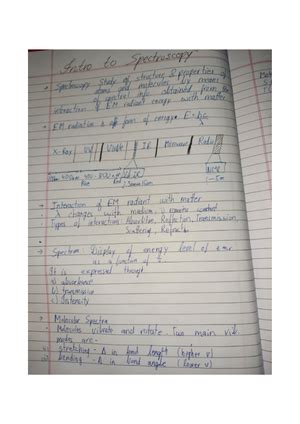 Intro to Spectroscopy
Spectroscopy Study of structure & properties of
atoms and molecules by means
of spectral info obtained from the
interaction of EM radiant energy with matter
EM radiation is a form of energy E = hc
X-Ray | UV | Visible | IR | Microwave | Radio
400-800
Red
NMR
1-5m
Interaction of EM radiant with matter
λ changes with medium, ν remains constant
Types of interaction Absorbtion, Reflection, Transmission,
Scattering, Refraction
Spectrum Display of energy level of emr
as a function of
It is expressed through
a) absorbance
b) transmission
c) Intensity
Molecular Spectra
Molecules vibrate and rotate. Two main vib.
modes are -
i) stretching - Δ in bond lenght (higher ν)
ii) bending - Δ in bond angle (lower ν)